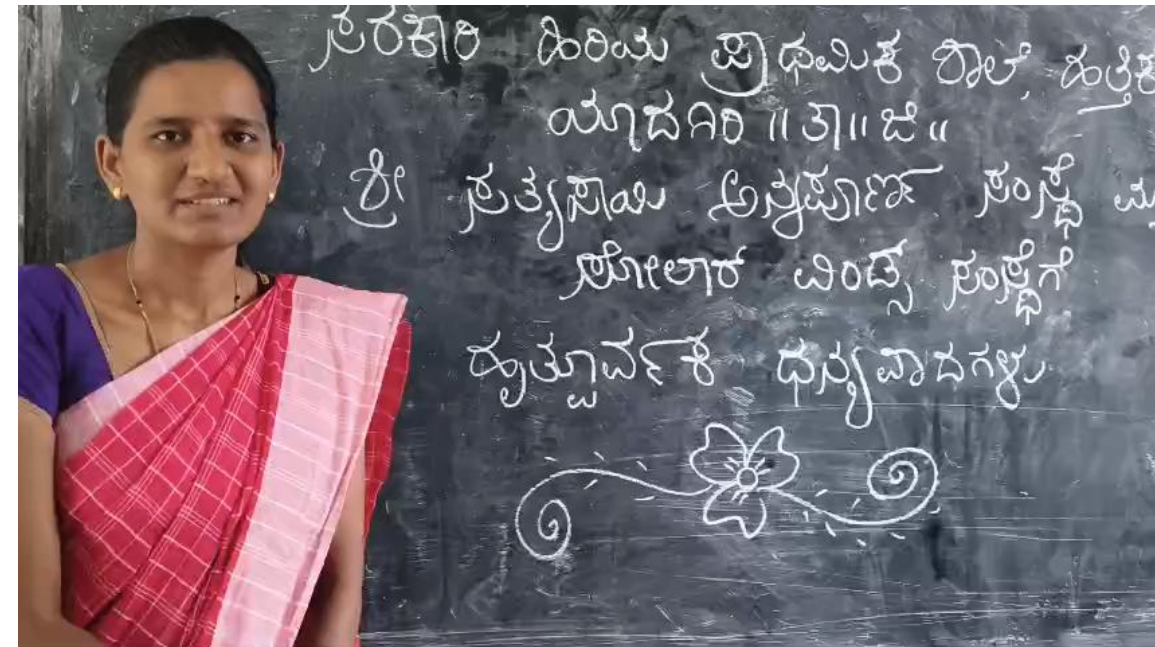 ಸರಕಾರಿ ಹಿರಿಯ ಪ್ರಾಥಮಿಕ ಶಾಲೆ,
ಯಾದಗಿರಿ ॥ತಾ॥ಜಿ॥
ಶ್ರೀ ಸತ್ಯಸಾಯಿ ಅನ್ನಪೂರ್ಣ ಸಂಸ್ಥೆ
ಸೋಲಾರ್ ವಿಂಡ್ಸ್ ಸಂಸ್ಥೆಗೆ
ಹೃತ್ಪೂರ್ವಕ ಧನ್ಯವಾದಗಳು